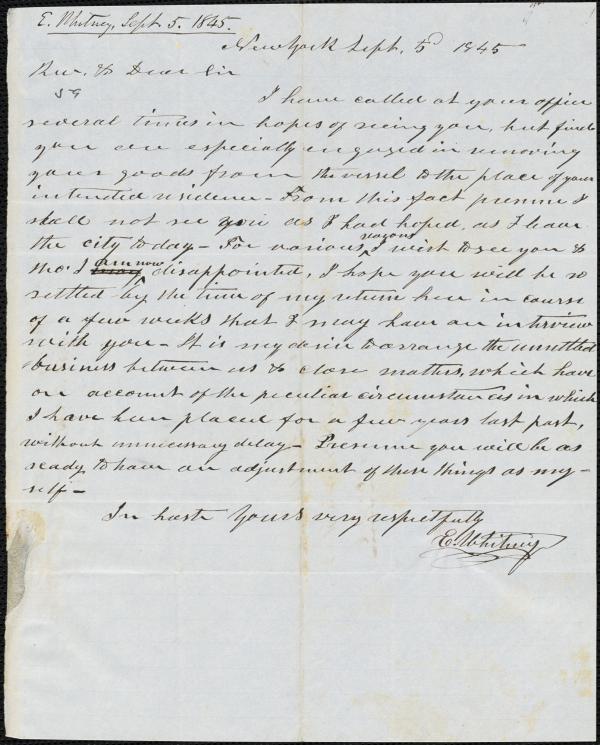 E. Whitney, Sept. 5. 1845.
New York Sept. 5th 1845
Rev. & Dear Sir
59
I have called at your office
several times in hopes of seeing you, but find
you are especially engaged in removing
your goods from the vessel to the place of your
intended residence - From this fact presume I
shall not see you as I had hoped, as I leave
the city to day - For various ^ reasons I wish to see you &
tho' I am now disappointed, I hope you will be so
settled by the time of my return here in course
of a few weeks that I may have an interview
with you - It is my desire to arrange the unsettled
business between us & close matters, which have
on account of the peculiar circumstances in which
I have been placed for a few years last past,
without unnecessary delay - Presume you will be as
ready to have an adjustment of these things as my-
self -
In haste Yours very respectfully
E. Whitney